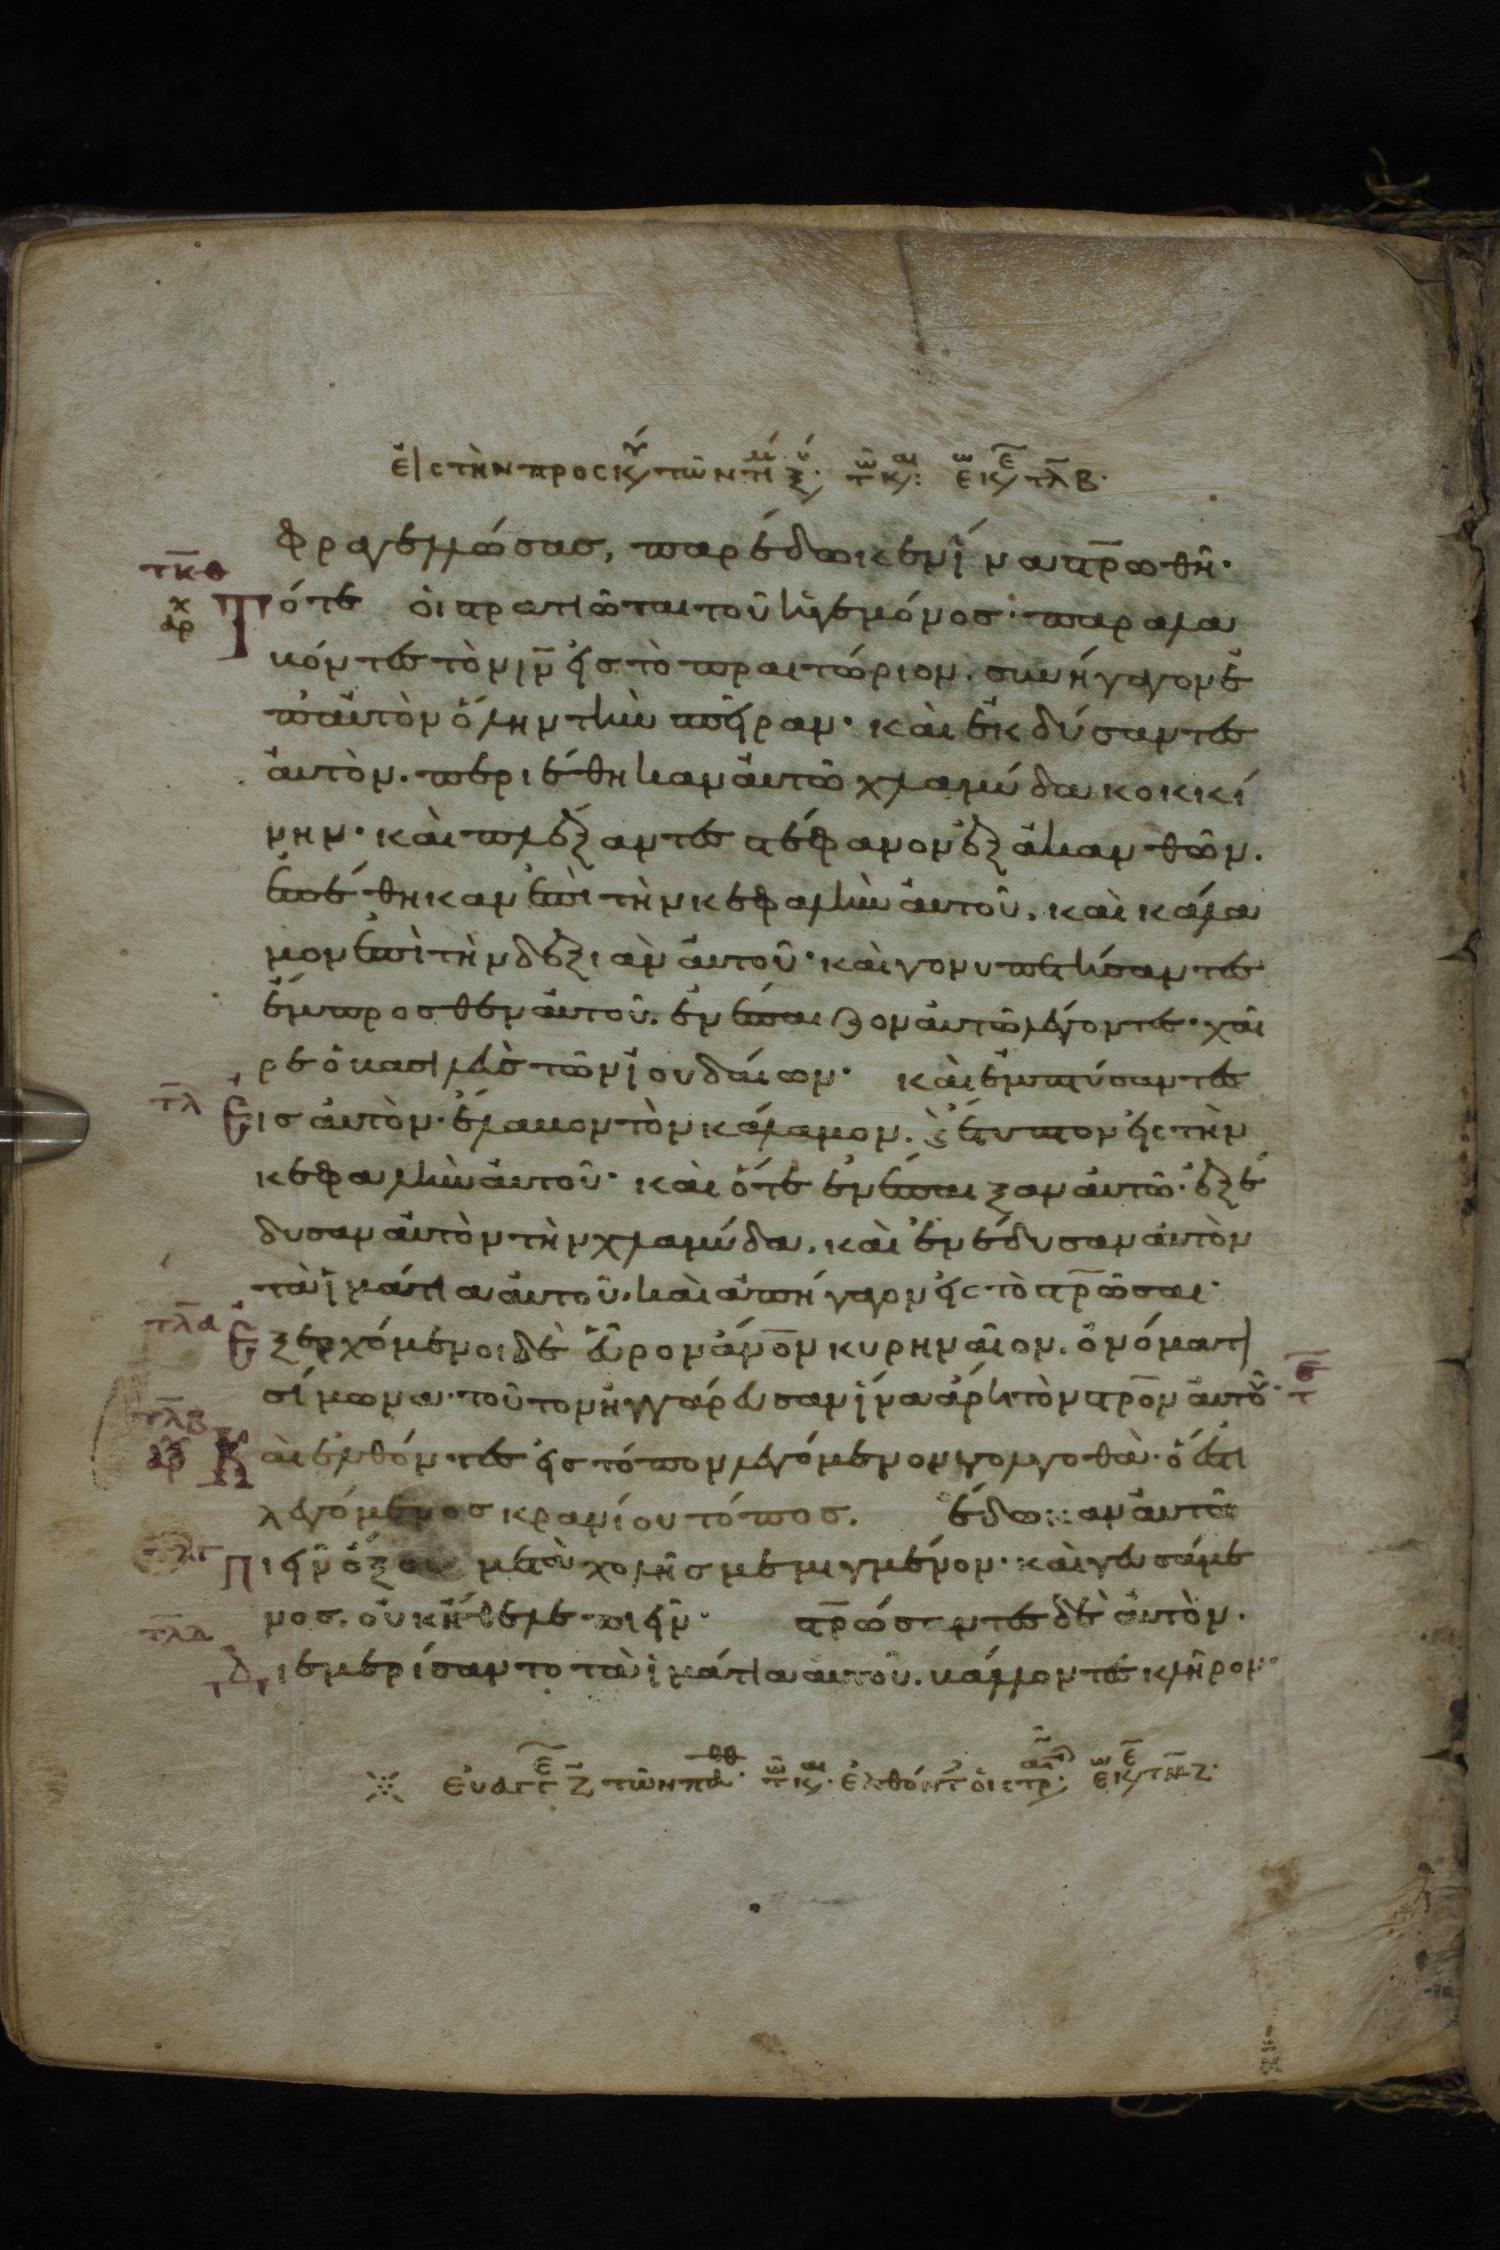 εἰς τὴν προσκυ τῶν τι ξυ· τω κ: εκ τλβ·
φραγελλώσας, παρέδωκεν ἵνα στρωθῆ·
τκθ
Τότε οἱ στρατιῶται τοῦ ἡγεμόνος· παραλα
βόντες τὸν ιν εἰς τὸ πραιτώριον. συνήγαγον ἐ
π' αὐτὸν ὅλην τὴν σπεῖραν· καὶ ἐκδύσαντες
αὐτὸν. περιέθηκαν αὐτῶ χλαμύδα κοκκί
νην· καὶ πλέξαντες στέφανον ἐξ ἀκανθῶν.
ἐπέθηκαν ἐπὶ τὴν κεφαλὴν αὐτοῦ. καὶ κάλα
μον ἐπὶ τὴν δεξιὰν αὐτοῦ· καὶ γονυπετήσαντες
ἔμπροσθεν αὐτοῦ. ἐνέπαιζον αὐτῶ λέγοντες· χαῖ
ρε ὁ βασιλεὺς τῶν ἰουδαίων· καὶ ἐμπτύσαντες
τλ
Εἰς αὐτὸν· ἔλαβον τὸν κάλαμον. ϗ ἔτυπτον εἰς τὴν
κεφαλὴν αὐτοῦ· καὶ ὅτε ἐνέπαιξαν αὐτῶ· ἐξέ
δυσαν αὐτὸν τὴν χλαμύδα. καὶ ἐνέδυσαν αὐτὸν
τὰ ἱμάτια αὐτοῦ. καὶ ἀπήγαγον εἰς τὸ στρῶσαι·
τλα
Εξερχόμενοι δὲ εὗρον ἄνον κυρηναῖον. ὀνόματι
σίμωνα· τοῦτον ἠγγάρευσαν ἵνα ἄρη τὸν στρον αὐτοῦ·
τλβ
Καὶ ἐλθόντες εἰς τόπον λεγόμενον γολγοθὰ· ὅ ἐστι
λεγόμενος κρανίου τόπος. ἔδωκαν αὐτῶ
τλγ
Πιεῖν ὄξος μετὰ χολῆς μεμιγμένον· καὶ γευσάμε
νος. οὐκ ἤθελε πιεῖν· στρώσαντες δὲ αὐτὸν.
τλδ
Διεμερίσαντο τὰ ἱμάτια αὐτοῦ. βάλλοντες κλῆρον·
ευαγγ ζ τῶν παθ· τω κ· ἐλθόντ οἱ στρ· εκ τκζ·